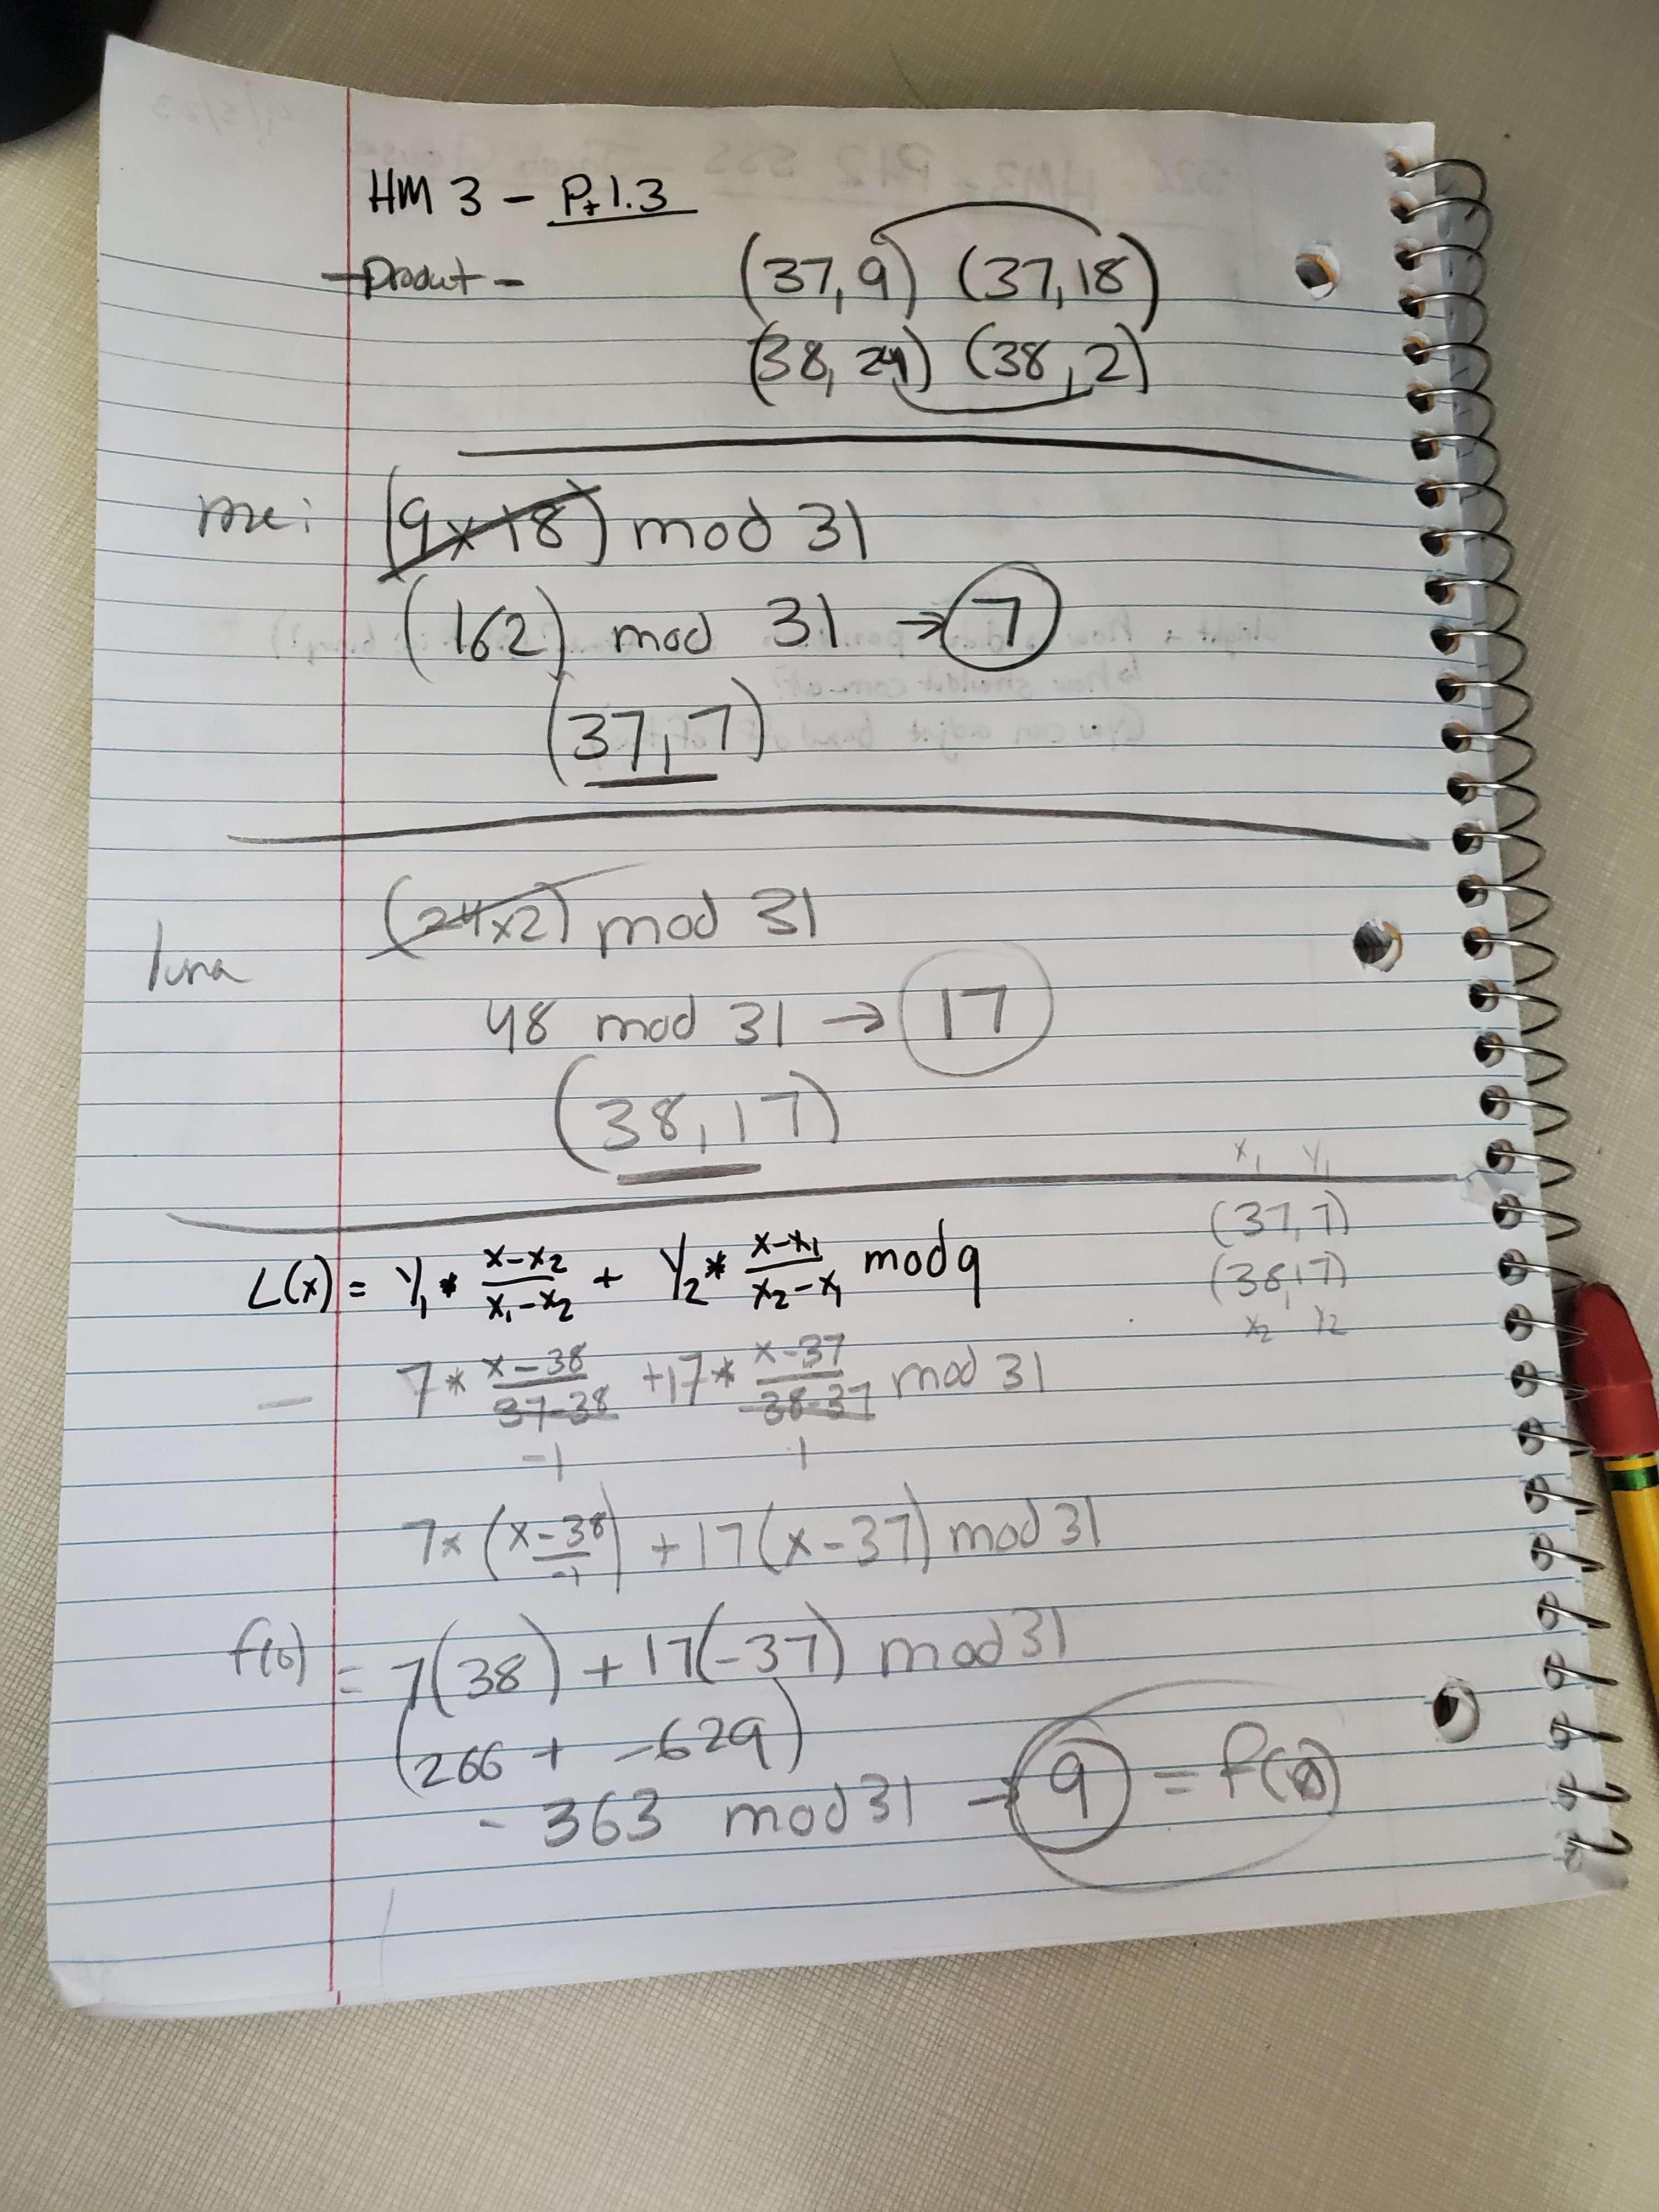 HM 3 - Pt 1.3
- Product -
(37,9) (37,18)
(38,24) (38,2)
me: (9x18) mod 31
(162) mod 31 → 7
(37,7)
luna (24x2) mod 31
48 mod 31 → 17
(38,17)
x₁ y₁
(37,7)
(38,17)
x₂ y₂
L(x) = y₁ * (x-x₂)/(x₁-x₂) + y₂ * (x-x₁)/(x₂-x₁) mod q
- 7 * (x-38)/(37-38) + 17 * (x-37)/(38-37) mod 31
-1 1
7 x (x-38)/-1 + 17(x-37) mod 31
f(0) = 7(38) + 17(-37) mod 31
(266 + -629)
-363 mod 31 → 9 = f(0)